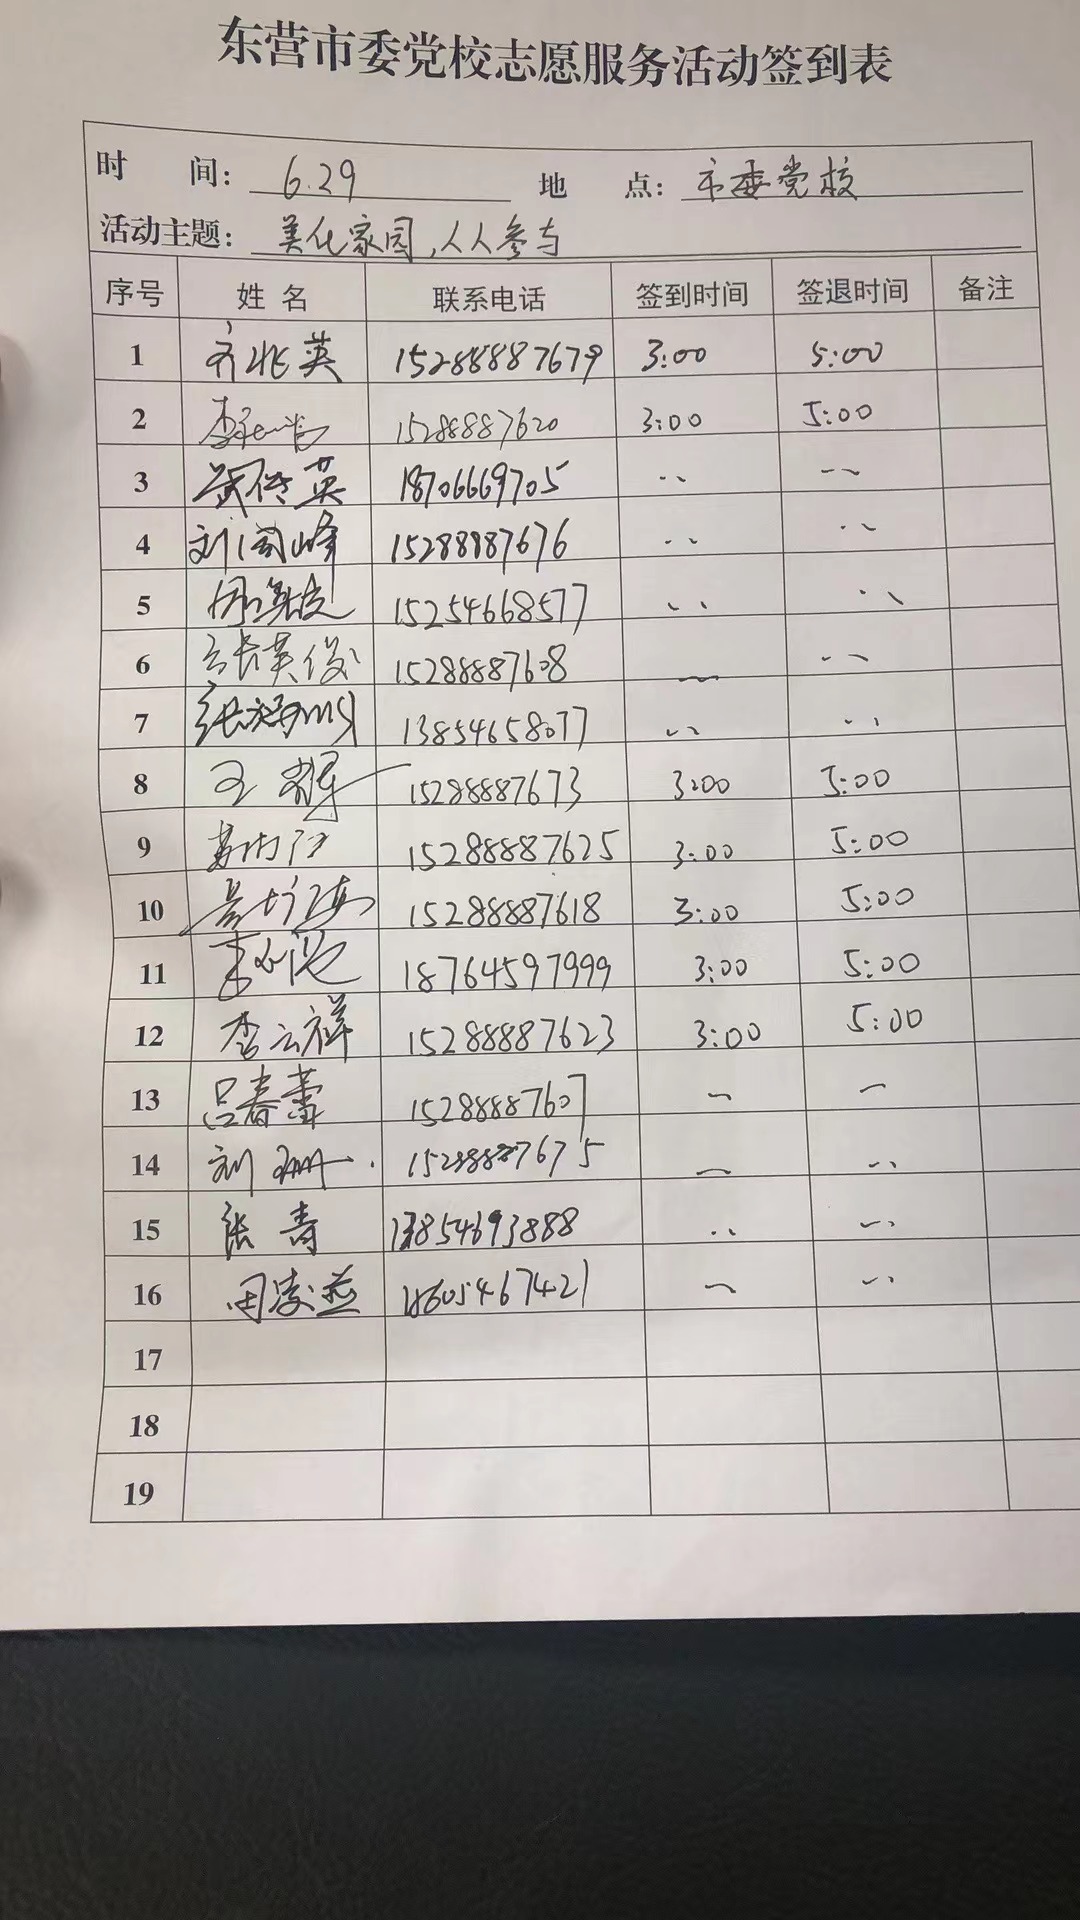 东营市委党校志愿服务活动签到表
时 间： 6.29 地 点： 市委党校
活动主题： 美化家园，人人参与
序号 姓名 联系电话 签到时间 签退时间 备注
1 齐兆英 15288887679 3:00 5:00
2 15288887620 3:00 5:00
3 英 18706669705 〃 〃
4 刘国峰 15288887676 〃 〃
5 15254668577 〃 〃
6 张英俊 15288887608 〃 〃
7 张 13854658077 〃 〃
8 王辉 15288887673 3:00 5:00
9 15288887625 3:00 5:00
10 15288887618 3:00 5:00
11 李 18764597999 3:00 5:00
12 李云祥 15288887623 3:00 5:00
13 吕春蕾 15288887607 〃 〃
14 刘珊 15288887675 〃 〃
15 张青 13854693888 〃 〃
16 田凌燕 18605467421 〃 〃
17
18
19